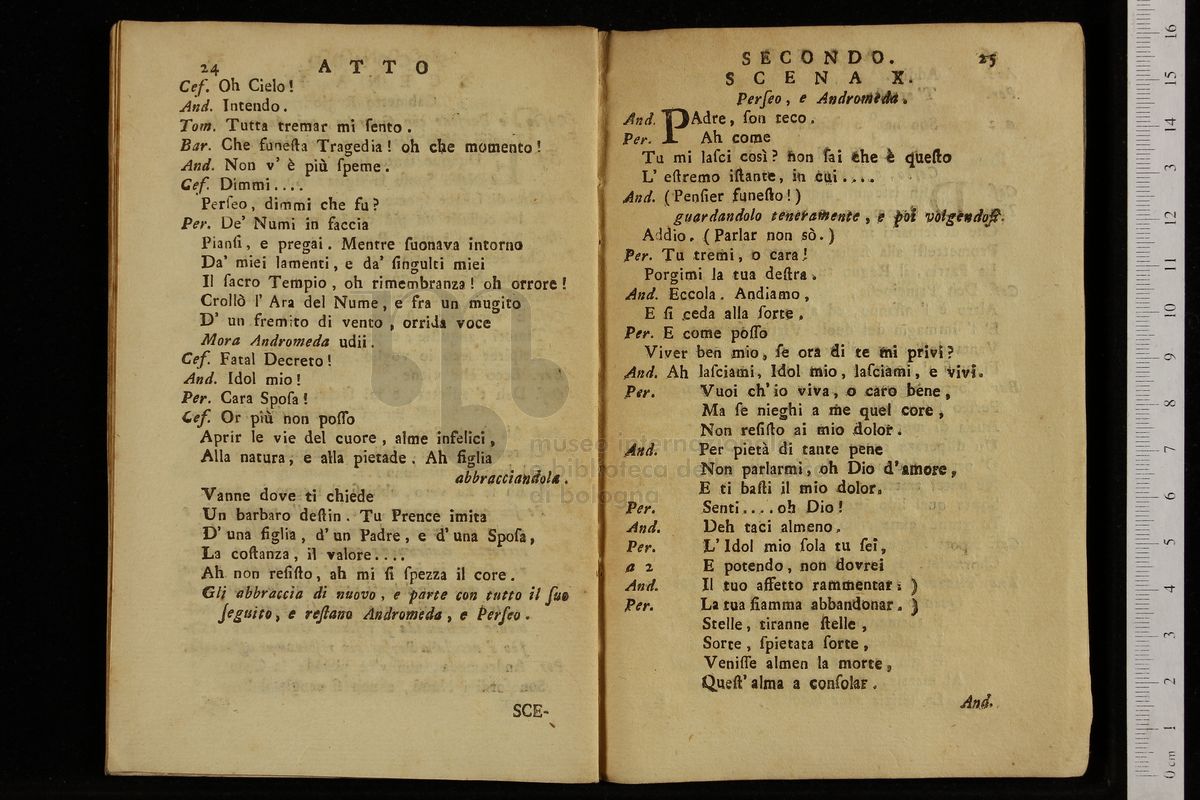 24 ATTO
Ceſ. Oh Cielo!
And. Intendo.
Tom. Tutta tremar mi ſento.
Bar. Che funeſta Tragedia! oh che momento!
And. Non v' è più ſpeme.
Ceſ. Dimmi....
Perſeo, dimmi che fu?
Per. De' Numi in faccia
Pianſi, e pregai. Mentre ſuonava intorno
Da' miei lamenti, e da' ſingulti miei
Il ſacro Tempio, oh rimembranza! oh orrore!
Crollò l' Ara del Nume, e fra un mugito
D' un fremito di vento, orrida voce
Mora Andromeda udii.
Ceſ. Fatal Decreto!
And. Idol mio!
Per. Cara Spoſa!
Ceſ. Or più non poſſo
Aprir le vie del cuore, alme infelici,
Alla natura, e alla pietade. Ah figlia
abbracciandola.
Vanne dove ti chiede
Un barbaro deſtin. Tu Prence imita
D' una figlia, d' un Padre, e d' una Spoſa,
La coſtanza, il valore....
Ah non reſiſto, ah mi ſi ſpezza il core.
Gli abbraccia di nuovo, e parte con tutto il ſuo
ſeguito, e reſtano Andromeda, e Perſeo.
SCE-
SECONDO. 25
SCENA X.
Perſeo, e Andromeda.
And. PAdre, ſon teco.
Per. Ah come
Tu mi laſci così? non ſai che è queſto
L' eſtremo iſtante, in cui....
And. (Penſier funeſto!)
guardandolo teneramente, e poi volgendoſi.
Addio. (Parlar non sò.)
Per. Tu tremi, o cara!
Porgimi la tua deſtra.
And. Eccola. Andiamo,
E ſi ceda alla ſorte.
Per. E come poſſo
Viver ben mio, ſe ora di te mi privi?
And. Ah laſciami, Idol mio, laſciami, e vivi.
Per. Vuoi ch' io viva, o caro bene,
Ma ſe nieghi a me quel core,
Non reſiſto ai mio dolor.
And. Per pietà di tante pene
Non parlarmi, oh Dio d' amore,
E ti baſti il mio dolor.
Per. Senti....oh Dio!
And. Deh taci almeno.
Per. L' Idol mio ſola tu ſei,
a 2 E potendo, non dovrei
And. Il tuo affetto rammentar. )
Per. La tua fiamma abbandonar. )
Stelle, tiranne ſtelle,
Sorte, ſpietata ſorte,
Veniſſe almen la morte,
Queſt' alma a conſolar.
And.
museo internazionale
e biblioteca della
di bologna